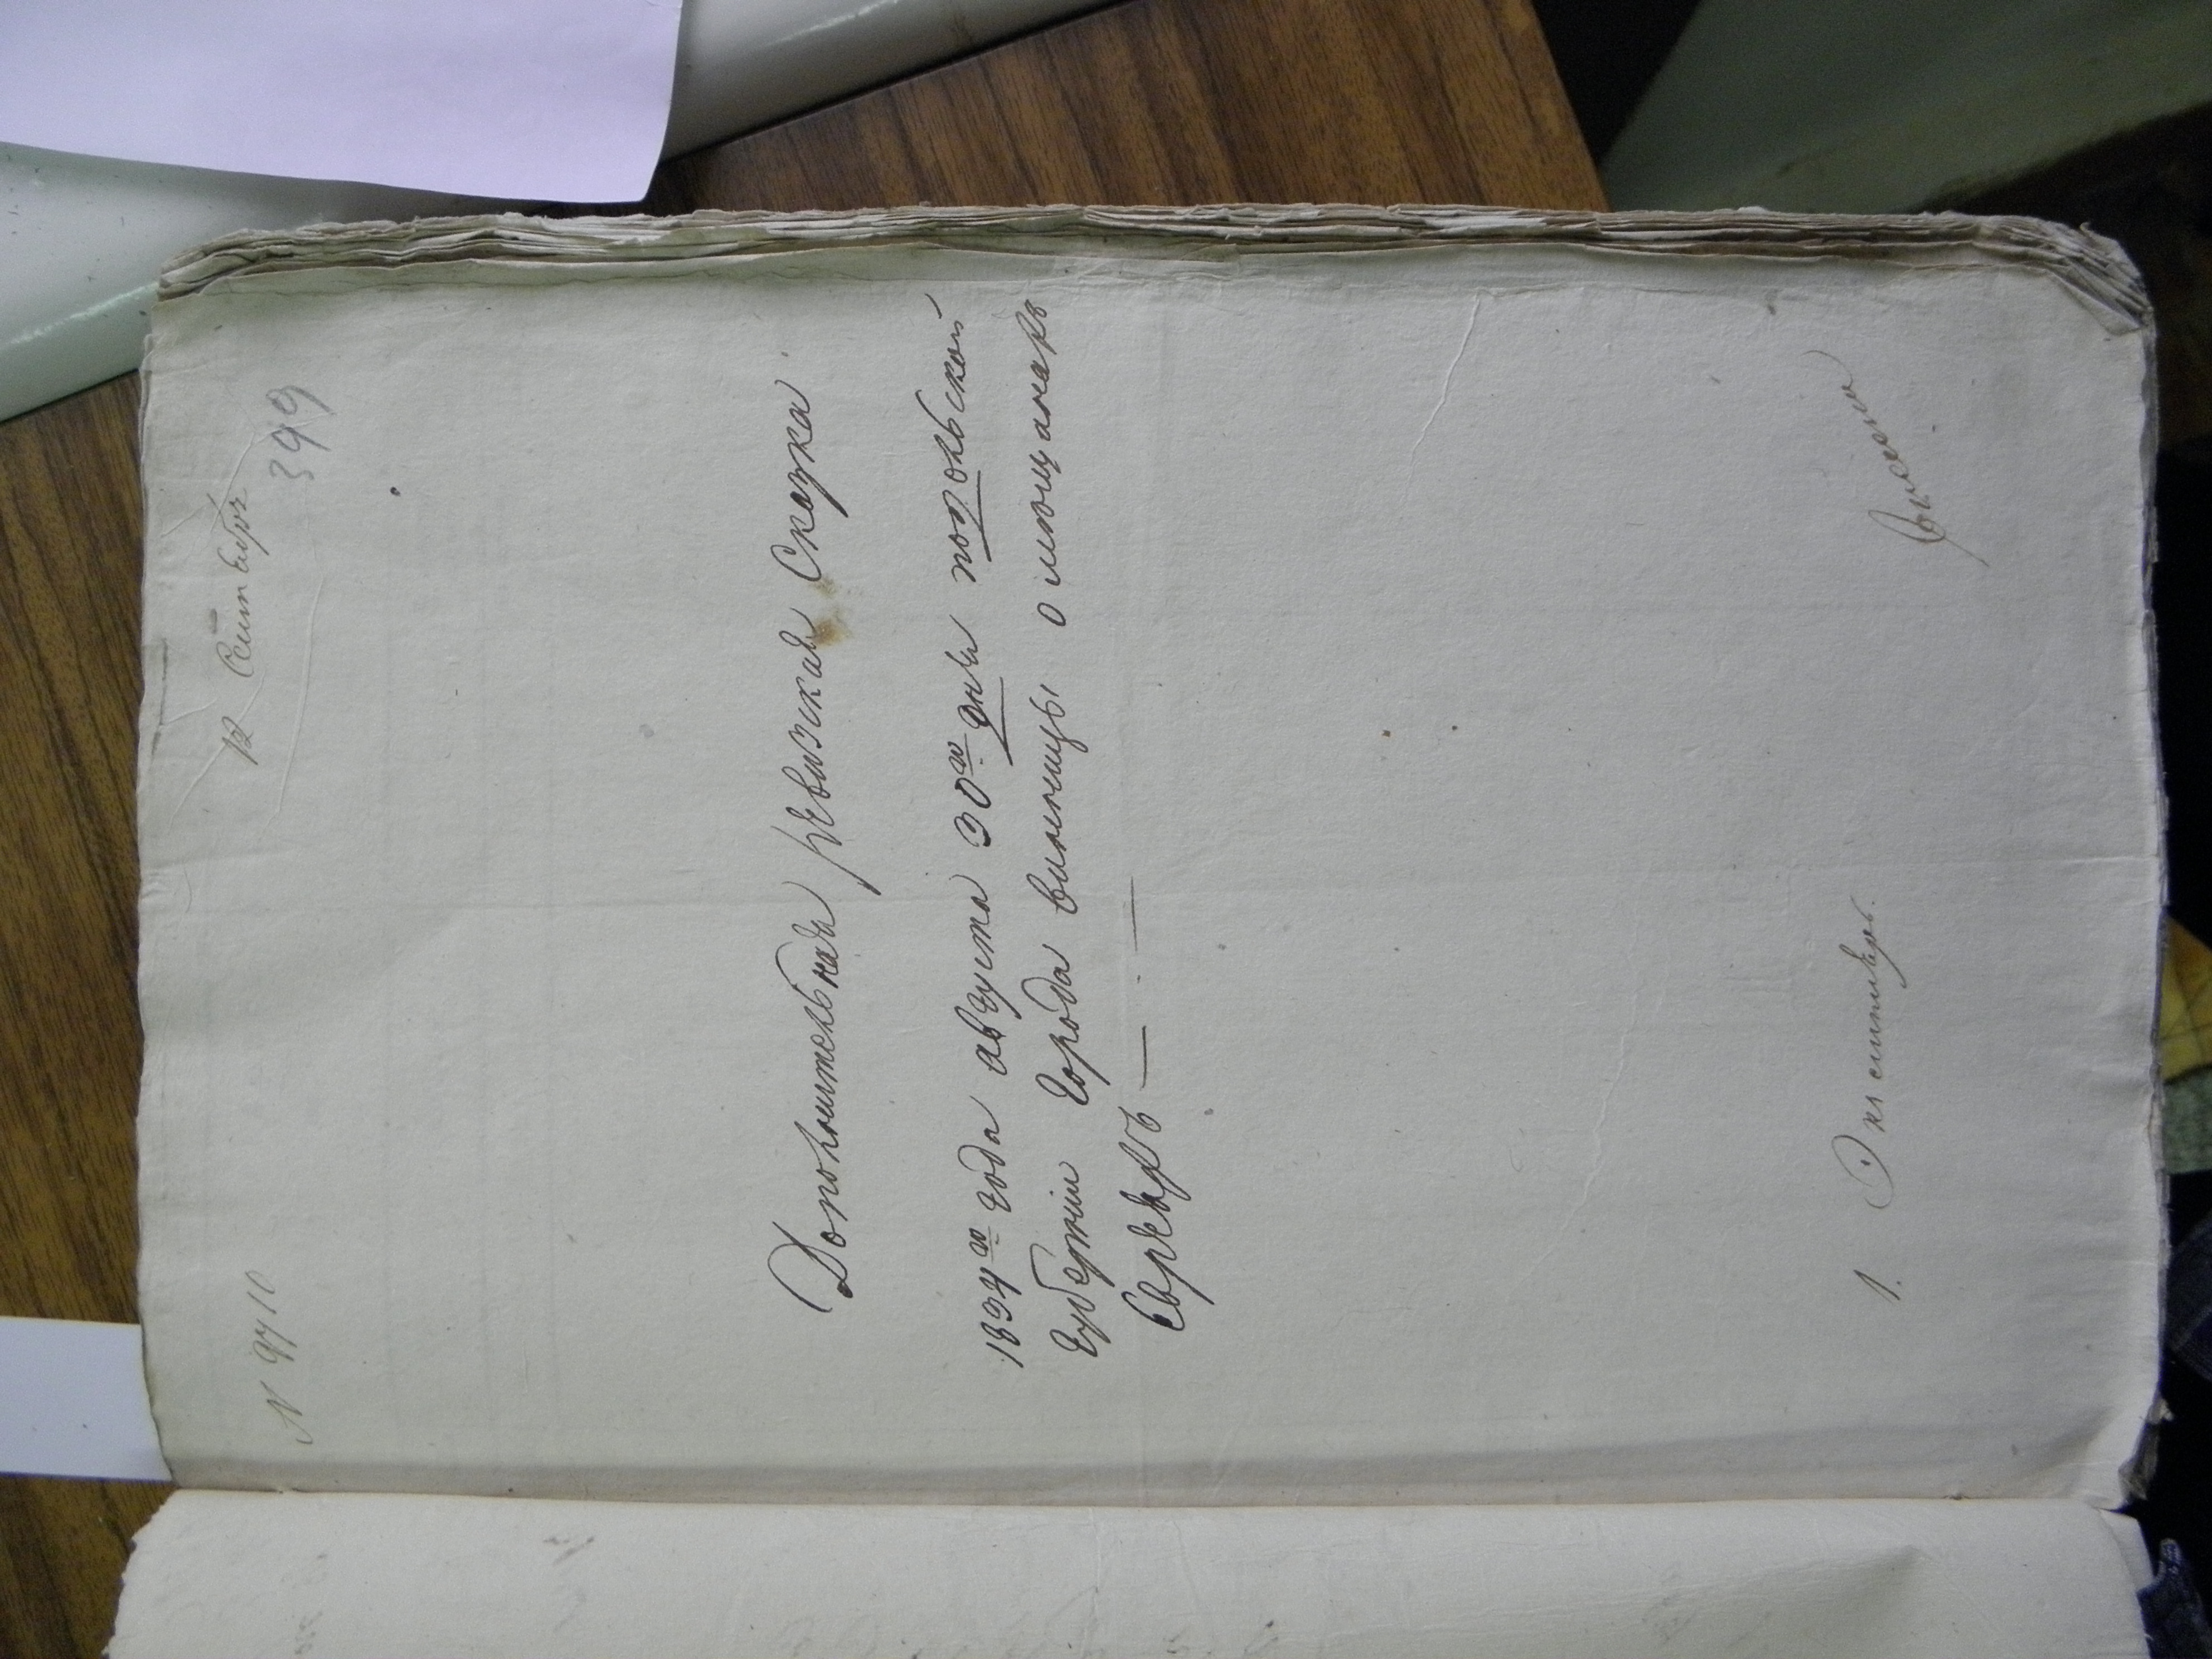 N 9710 12 Сентября
399
Дополнительная ревизская Сказка
1834го года августа 30го дня подольской
губернии города винницы о мещанахъ
евреяхъ
1. Экземпляръ.